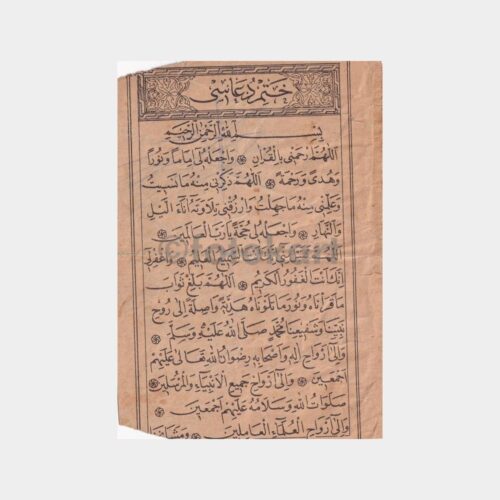 ختم دعاسى
بسم الله الرحمن الرحيم
اللهم ارحمنى بالقران ۞ واجعله لى اماما ونورا
وهدى ورحمة ۞ اللهم ذكرنى منه مانسيت
وعلمنى منه ماجهلت وارزقنى تلاوته اناء الليل
والنهار ۞ واجعله لى حجة يارب العالمين ۞
السميع العليم ۞ واغفرلنا
انك انت الغفور الكريم ۞ اللهم بلغ ثواب
ماقرأناه ونور ماتلوناه هدية واصلة الى روح
نبينا وشفيعنا محمد صلى الله عليه وسلم ۞
والى ارواح اله واصحابه رضوان الله تعالى عليهم
اجمعين ۞ والى ارواح جميع الانبياء والمرسلين
صلوات الله وسلامه عليهم اجمعين ۞
والى ارواح العلماء العاملين ۞